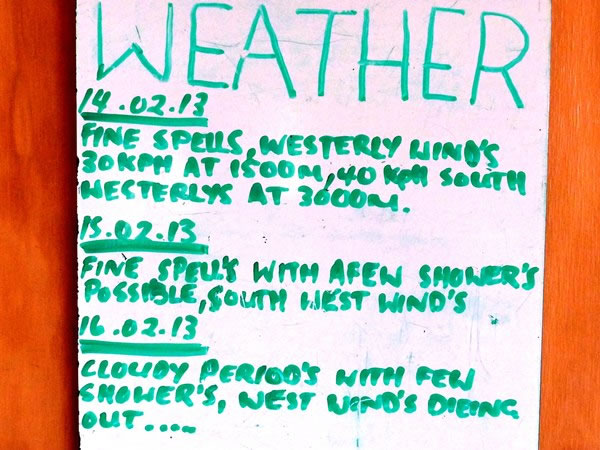 WEATHER
14.02.13
FINE SPELLS, WESTERLY WIND'S
30KPH AT 1500M, 40 KPH SOUTH
WESTERLYS AT 3000M.
15.02.13
FINE SPELL'S WITH AFEW SHOWER'S
POSSIBLE, SOUTH WEST WIND'S
16.02.13
CLOUDY PERIOD'S WITH FEW
SHOWER'S, WEST WIND'S DIEING
OUT.....